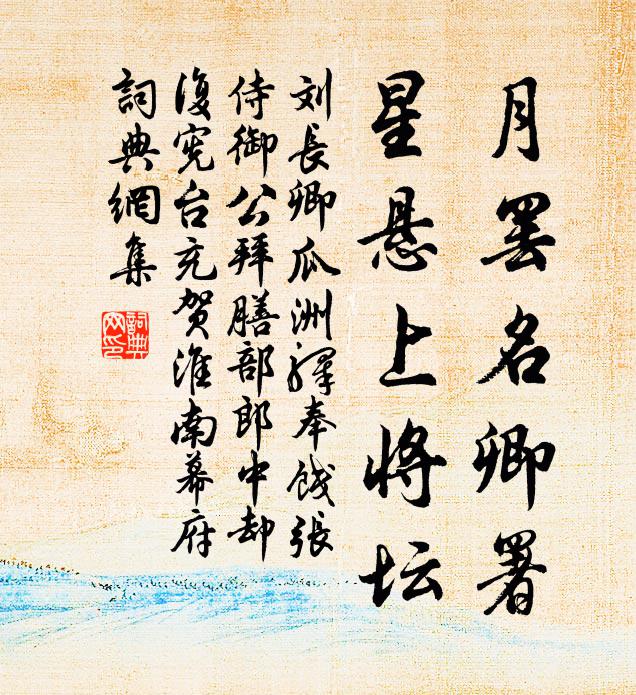 月罢名卿署
星悬上将坛
刘長卿瓜洲驛奉餞張
侍御公拜膳部郎中却
復宪台充贺淮南幕府
詞典網集
詞典网印